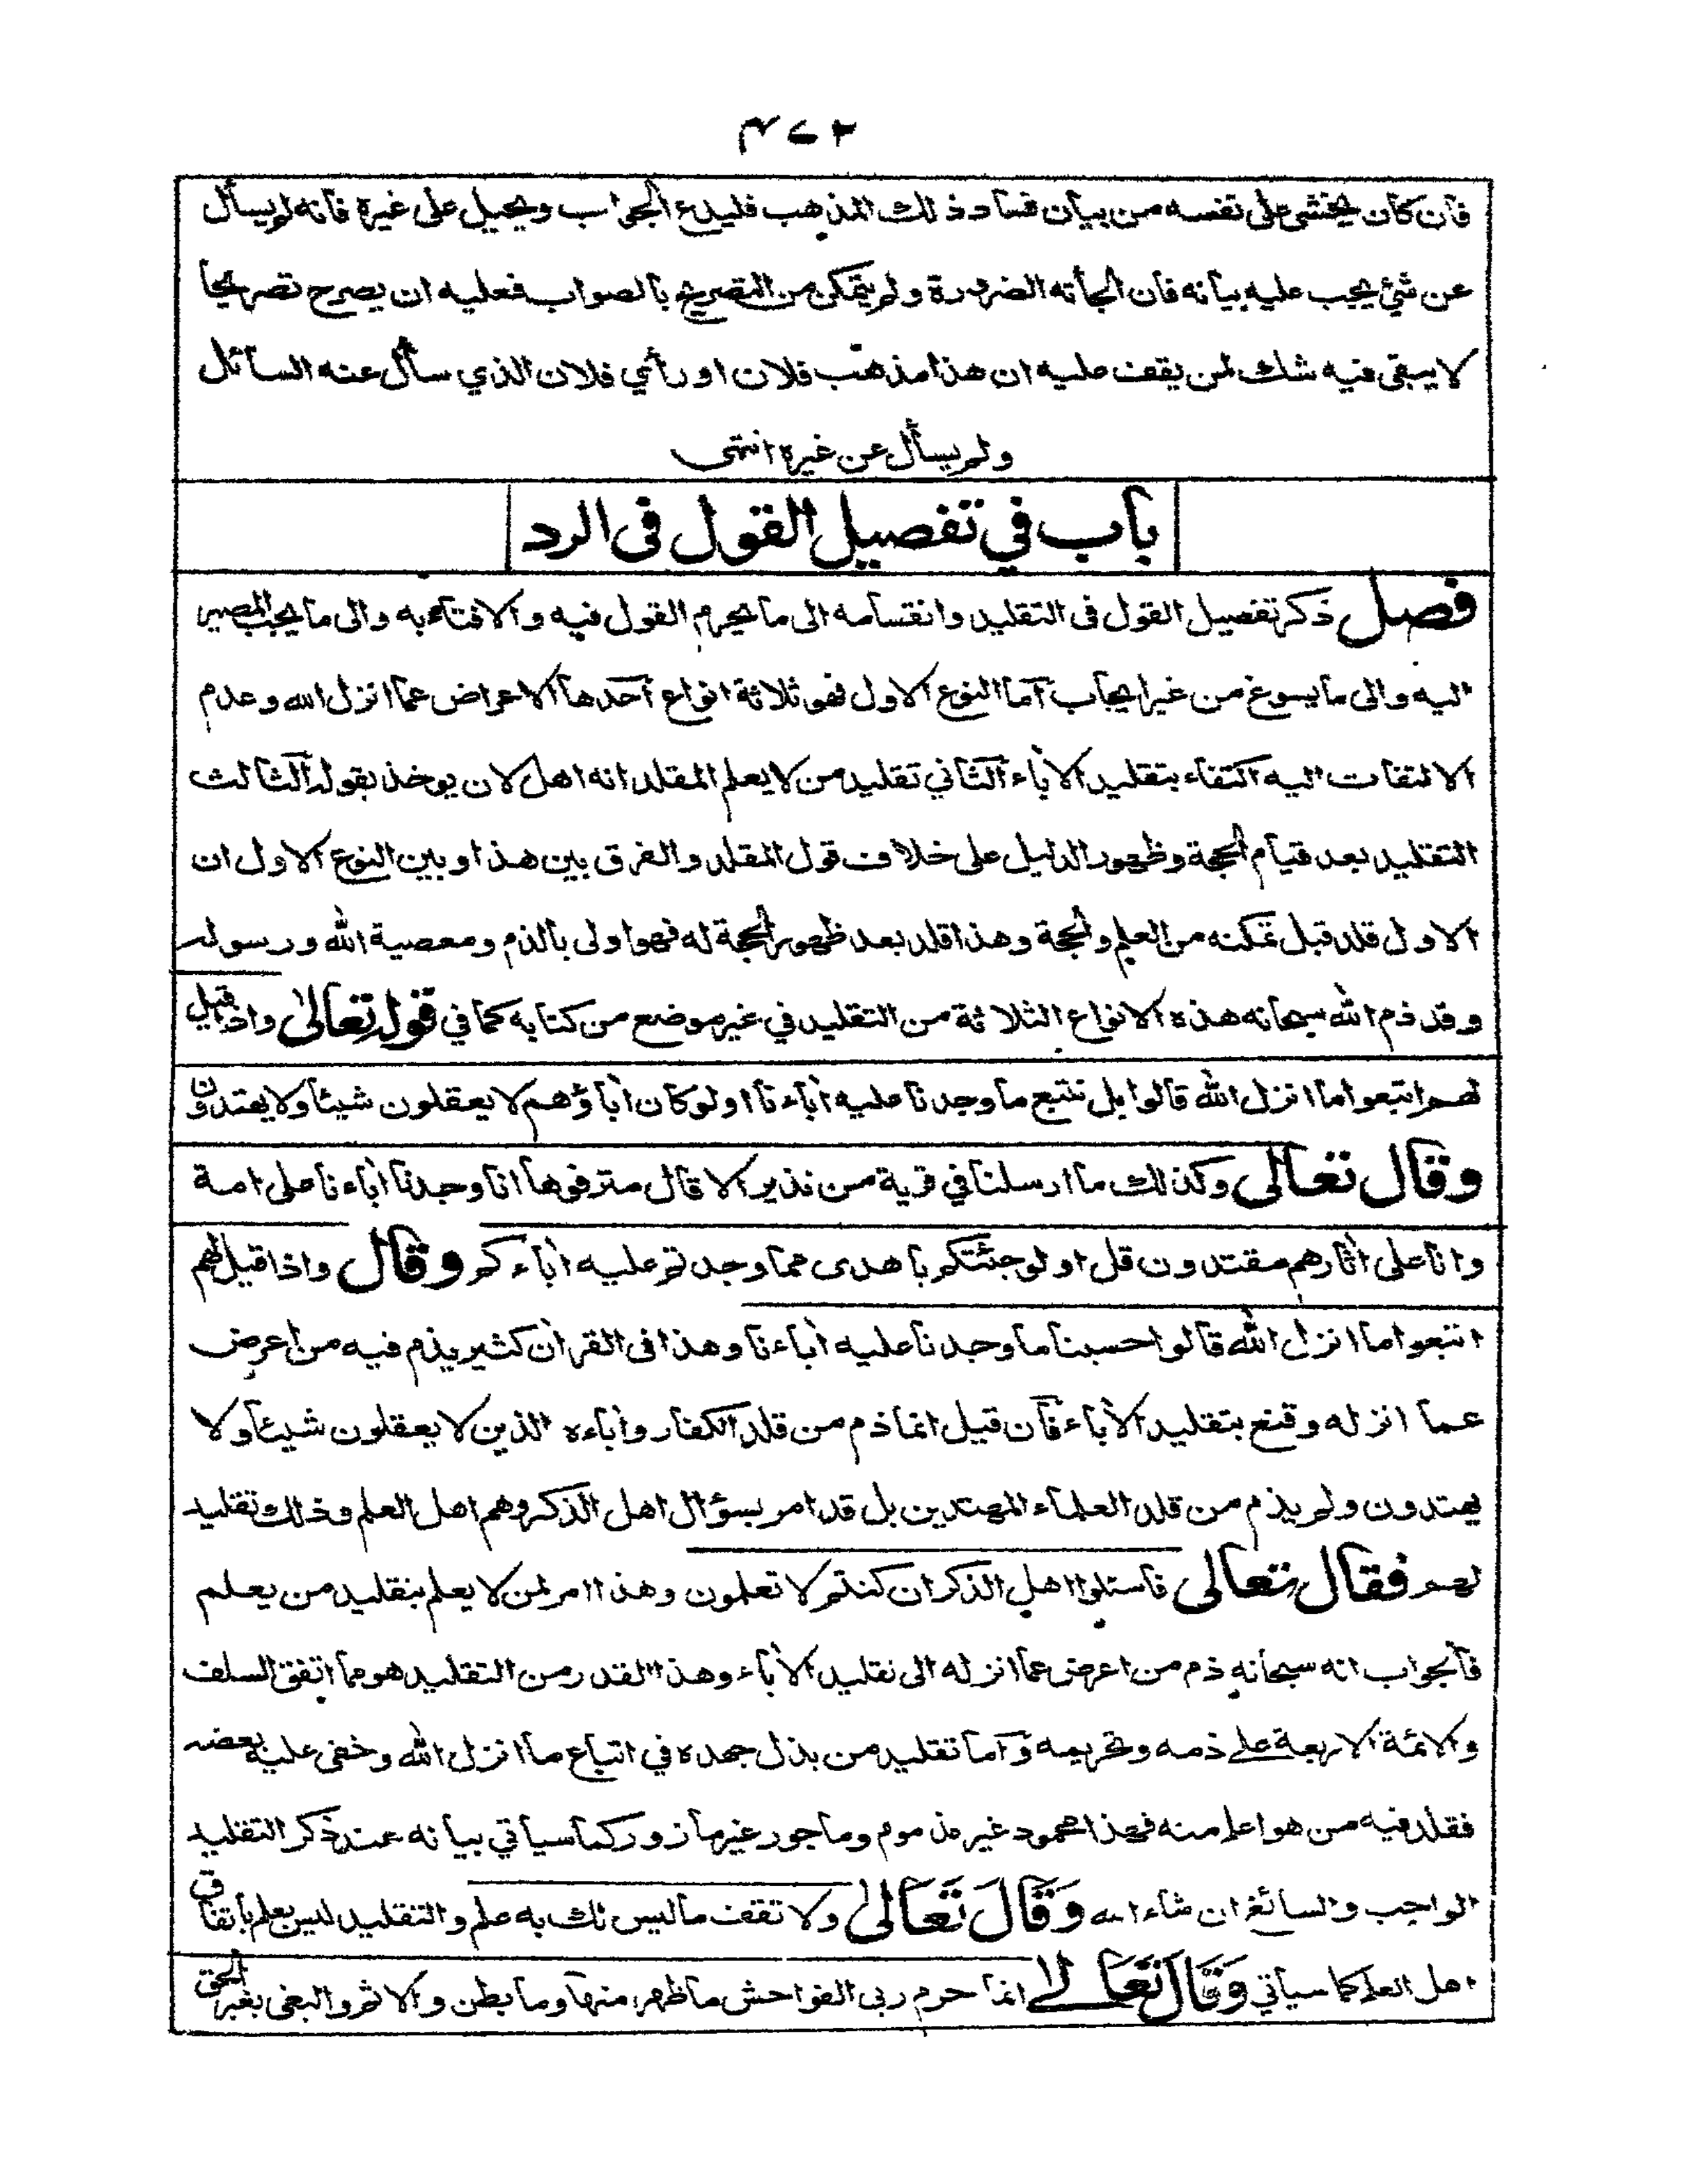 ٤٧٢
فان كان يخشى على نفسه من بيان فساد ذلك المذهب فليدع الجواب ويحيل على غيره فانه لم يسأل
عن شئ يجب عليه بيانه فان الجأته الضرورة ولم يتمكن من التصريح بالصواب فعليه ان يصرح تصريحا
لا يبقى فيه شك لمن يقف عليه ان هذا مذهب فلان او رأي فلان الذي سأل عنه السائل
ولم يسأل عن غيره انتهى
باب في تفصيل القول فى الرد
فصل ذكر تفصيل القول فى التقليد وانقسامه الى ما يحرم القول فيه والافتاء به والى ما يجب المصير
اليه والى ما يسوغ من غير ايجاب آما النوع الاول فهو ثلاثة انواع آحدها الاعراض عما انزل الله وعدم
الالتفات اليه اكتفاء بتقليد الأباء آلثاني تقليد من لا يعلم المقلد انه اهل لان يوخذ بقوله آلثالث
التقليد بعد قيام الحجة وظهور الدليل على خلاف قول المقلد والفرق بين هذا وبين النوع الاول ان
الاول قلد قبل تمكنه من العلم والحجة وهذا قلد بعد ظهور الحجة له فهو اولى بالذم ومعصية الله ورسوله
وقد ذم الله سبحانه هذه الانواع الثلاثة من التقليد في غير موضع من كتابه كما في قوله تعالى واذا قيل
لهم اتبعوا ما انزل الله قالوا بل نتبع ما وجدنا عليه أباءنا اولو كان أباؤهم لا يعقلون شيئا ولا يهتدون
وقال تعالى وكذلك ما ارسلنا في قرية من نذير الا قال مترفوها انا وجدنا أباءنا على امة
وانا على أثارهم مقتدون قل اولو جئتكم باهدى مما وجدتم عليه أباءكم وقال واذا قيل لهم
اتبعوا ما انزل الله قالوا حسبنا ما وجدنا عليه أباءنا وهذا فى القرأن كثير يذم فيه من اعرض
عما انزله وقنع بتقليد الأباء فآن قيل انما ذم من قلد الكفار وأباءه الذين لا يعقلون شيئا ولا
يهتدون ولم يذم من قلد العلماء المهتدين بل قد امر بسؤال اهل الذكر وهم اهل العلم وذلك تقليد
لهم فقال تعالى فاسئلوا اهل الذكر ان كنتم لا تعلمون وهذا امر لمن لا يعلم بتقليد من يعلم
فآلجواب انه سبحانه ذم من اعرض عما انزله الى تقليد الأباء وهذا القدر من التقليد هو مما اتفق السلف
والائمة الاربعة على ذمه وتحريمه وآما تقليد من بذل جهده في اتباع ما انزل الله وخفى عليه بعضه
فقلد فيه من هو اعلم منه فهذا محمود غير مذموم وماجور غير مازور كما سيأتي بيانه عند ذكر التقليد
الواجب والسائغ ان شاء الله وَقَالَ تَعَالىٰ ولا تقف ما ليس لك به علم والتقليد ليس بعلم باتفاق
اهل العلم كما سيأتي وَقَالَ تَعَالىٰ انما حرم ربى الفواحش ما ظهر منها وما بطن والاثم والبغى بغير الحق